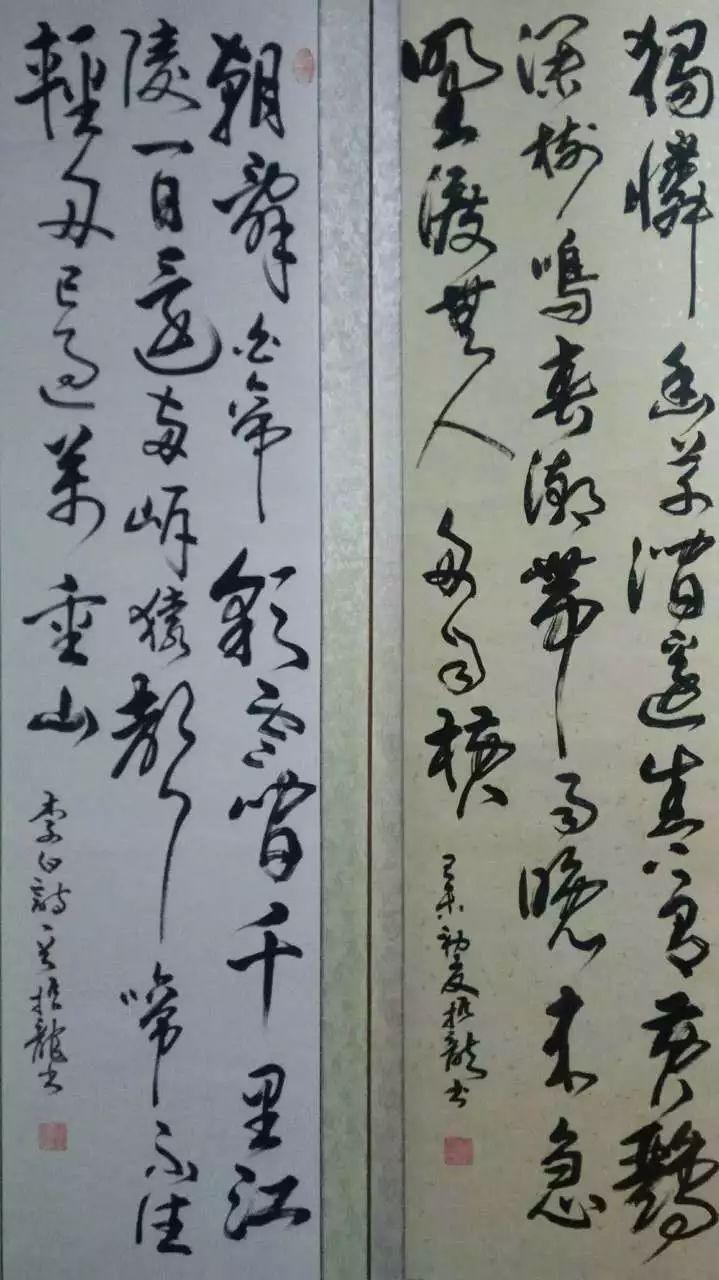 獨憐幽草澗邊生上有黃鸝
深樹鳴春潮帶雨晚來急
野渡無人舟自横
初夏振龍书
朝辭白帝彩雲間千里江
陵一日還兩岸猿聲啼不住
輕舟已過萬重山
李白詩 吴振龍书